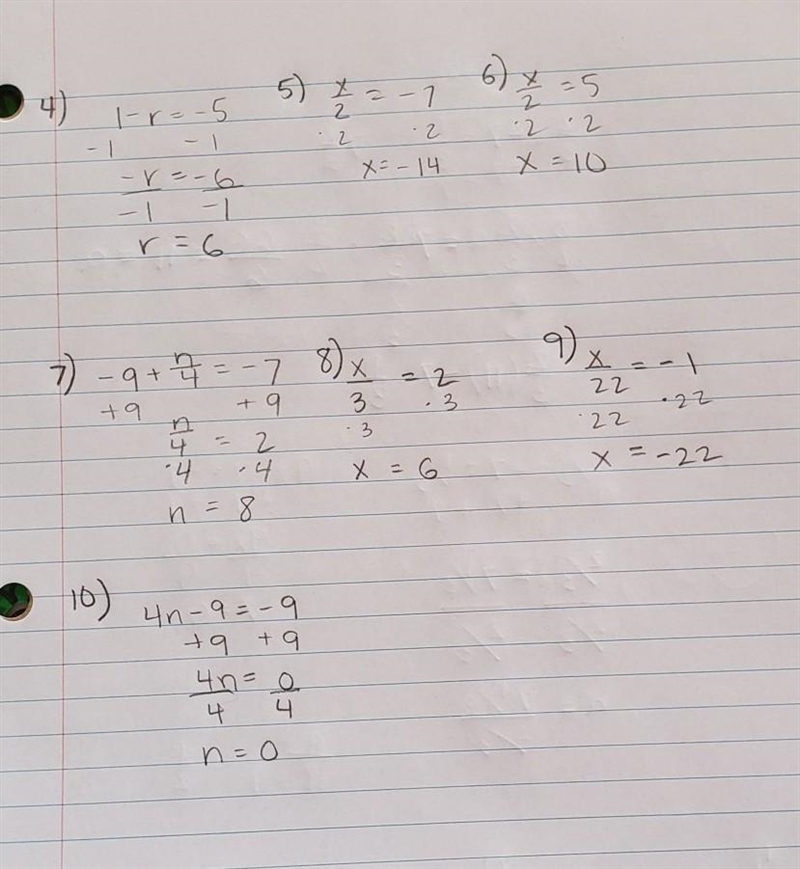 4) 1-r = -5
-1 -1
-r = -6
-1 -1
r = 6
5) x/2 = -7
·2 ·2
x = -14
6) x/2 = 5
·2 ·2
x = 10
7) -9 + n/4 = -7
+9 +9
n/4 = 2
·4 ·4
n = 8
8) x/3 = 2
·3 ·3
x = 6
9) x/22 = -1
·22 ·22
x = -22
10) 4n - 9 = -9
+9 +9
4n = 0
4 4
n = 0